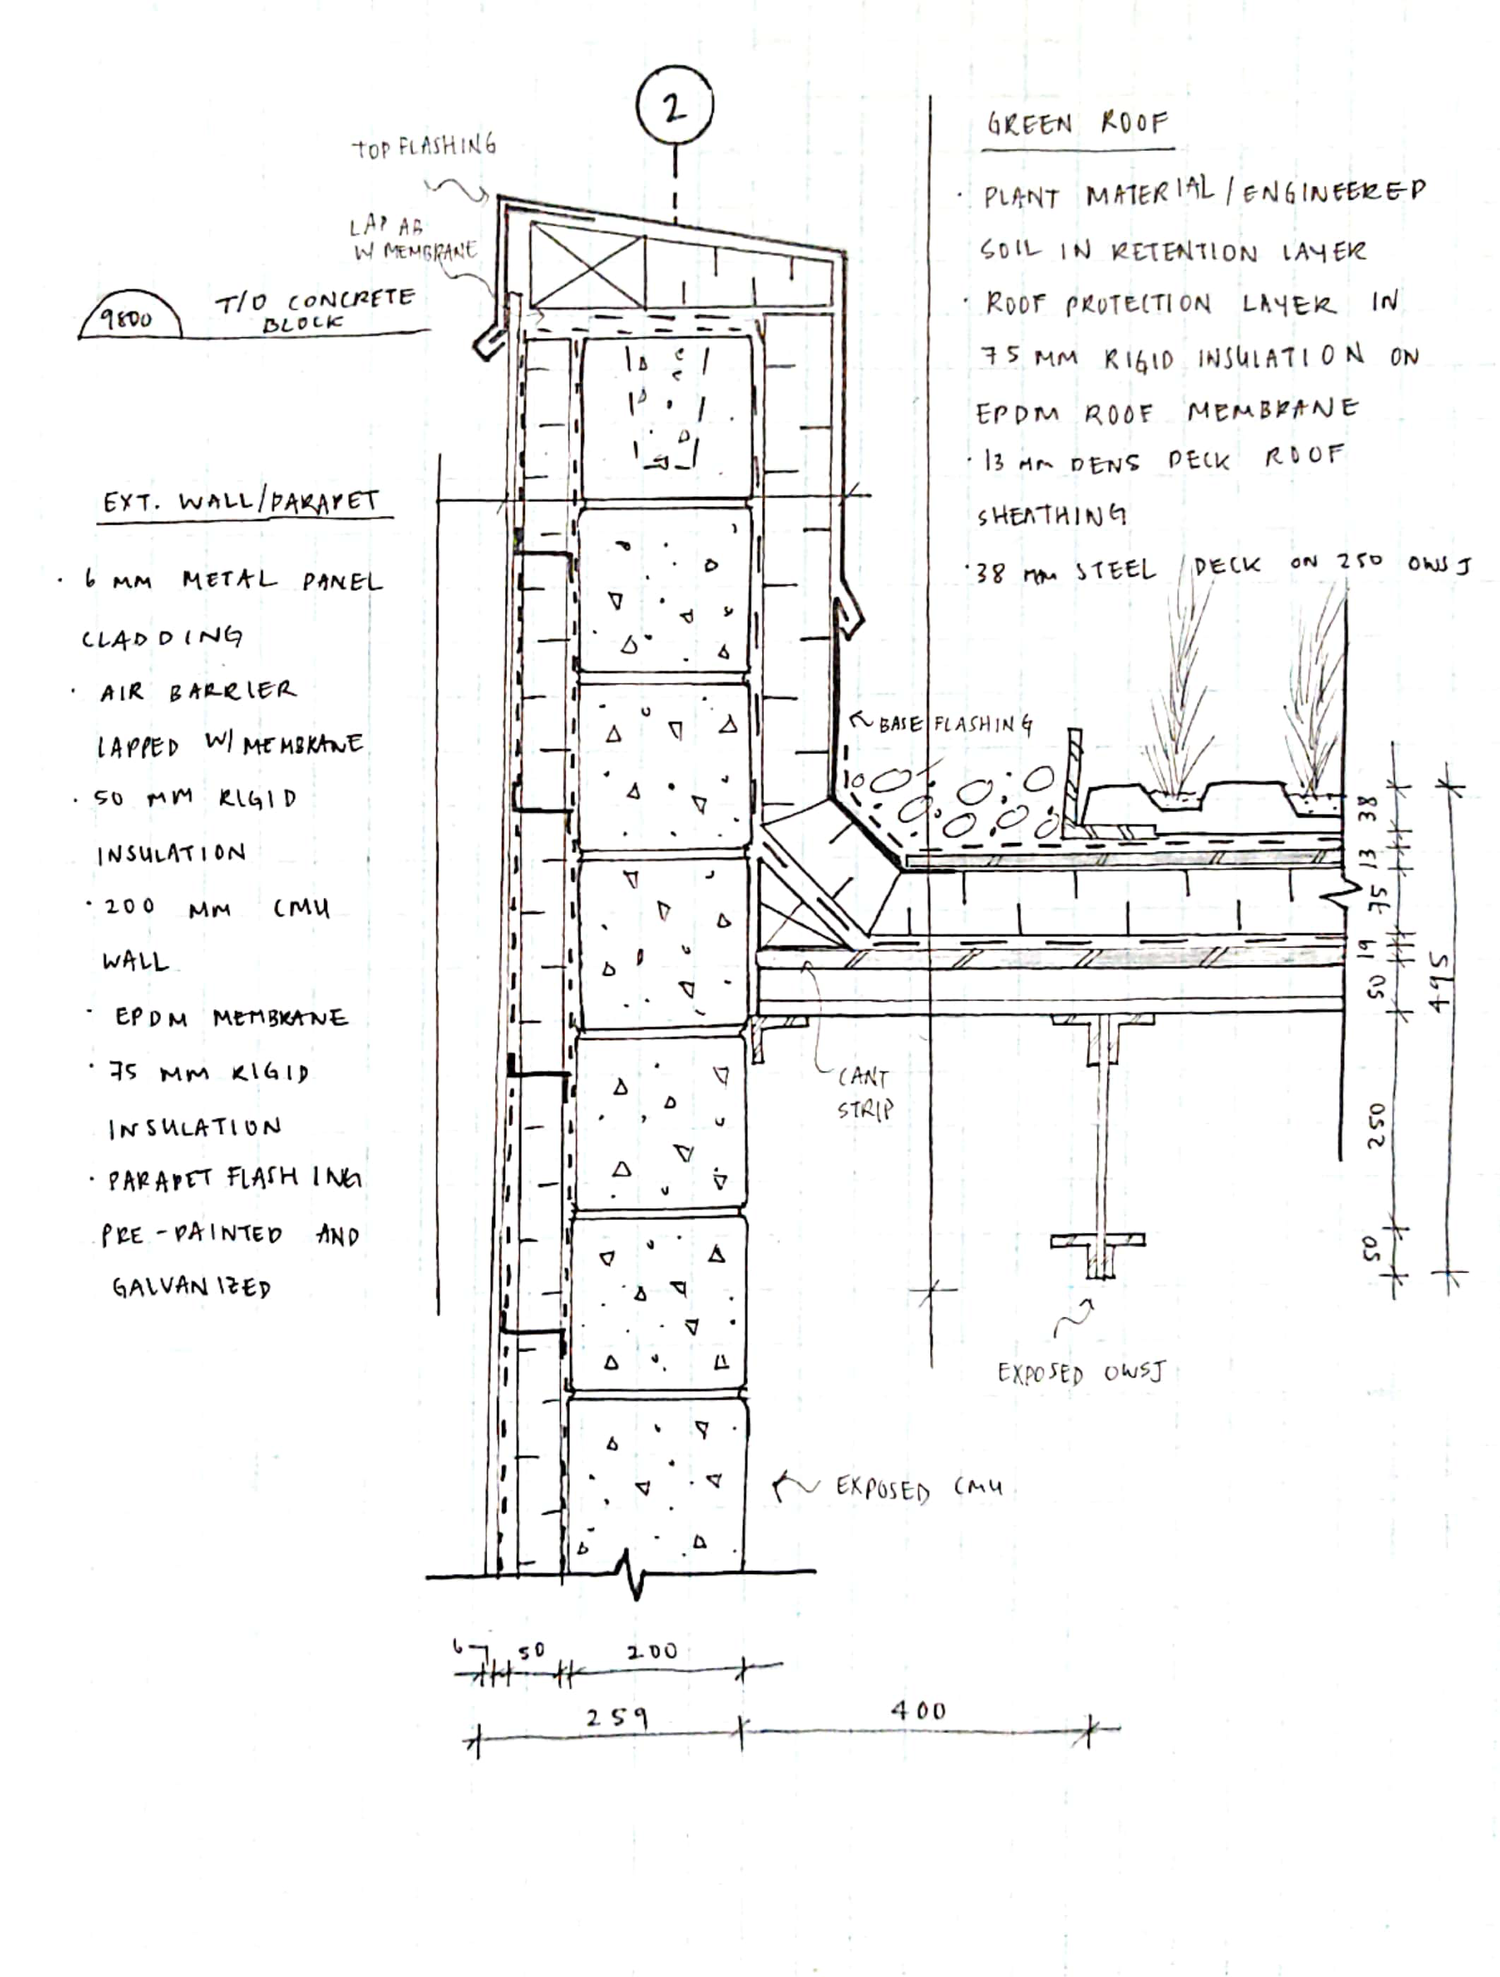 2
TOP FLASHING
LAP AB
W/ MEMBRANE
9800
T/O CONCRETE
BLOCK
GREEN ROOF
· PLANT MATERIAL/ENGINEERED
SOIL IN RETENTION LAYER
· ROOF PROTECTION LAYER IN
75 MM RIGID INSULATION ON
EPDM ROOF MEMBRANE
· 13 MM DENS DECK ROOF
SHEATHING
· 38 MM STEEL DECK ON 250 OWSJ
EXT. WALL/PARAPET
· 6 MM METAL PANEL
CLADDING
· AIR BARRIER
LAPPED W/ MEMBRANE
· 50 MM RIGID
INSULATION
· 200 MM CMU
WALL
· EPDM MEMBRANE
· 75 MM RIGID
INSULATION
· PARAPET FLASHING
PRE-PAINTED AND
GALVANIZED
BASE FLASHING
CANT
STRIP
38
13
75
19
50
250
50
495
EXPOSED OWSJ
EXPOSED CMU
6
50
200
259
400